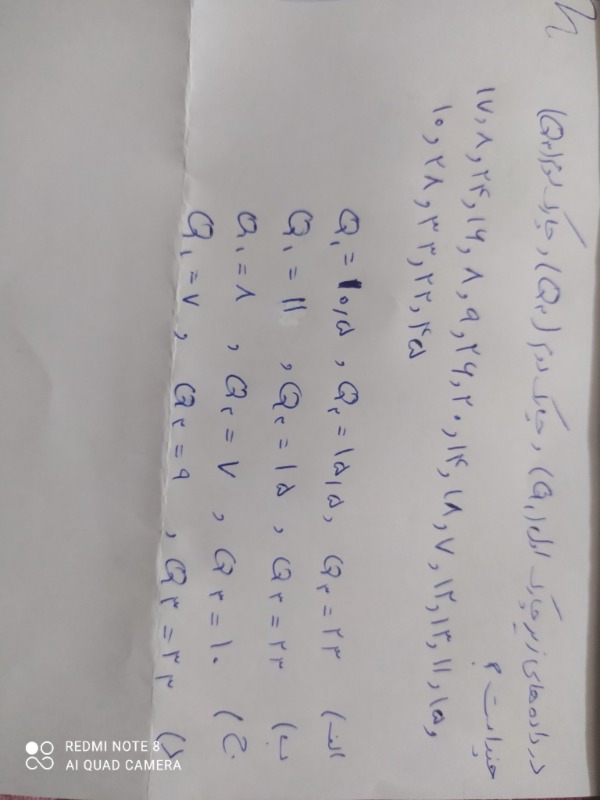 در داده‌های زیر چارک اول (Q۱) , چارک دوم (Q۲) , چارک سوم (Q۳)
چند است ؟
۱۷, ۸, ۲۴, ۱۶, ۸, ۹, ۲۶, ۲۰, ۱۴, ۱۸, ۷, ۱۲, ۱۳, ۱۱, ۱۵,
۱۰, ۲۸, ۳۳, ۲۲, ۴۵
الف) Q۱ = ۱۰,۵ , Q۲ = ۱۵,۵ , Q۳ = ۲۳
ب) Q۱ = ۱۱ , Q۲ = ۱۵ , Q۳ = ۲۳
ج) Q۱ = ۸ , Q۲ = ۷ , Q۳ = ۱۰
د) Q۱ = ۷ , Q۲ = ۹ , Q۳ = ۲۳
REDMI NOTE 8
AI QUAD CAMERA